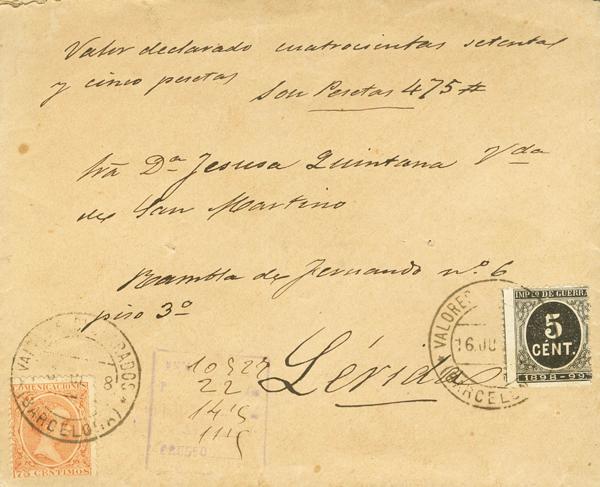 Valor declarado cuatrocientas setenta
y cinco pesetas
Son Pesetas 475 #
Sra Dª Jesusa Quintana Vda
de San Martino
Rambla de Fernando nº 6
piso 3º
Lérida
VALORES DECLARADOS
(BARCELONA)
COMUNICACIONES
75 CENTIMOS
22
VALORES
16 JU
(BARCELO
IMPTO DE GUERRA
5
CÉNT.
1898-99